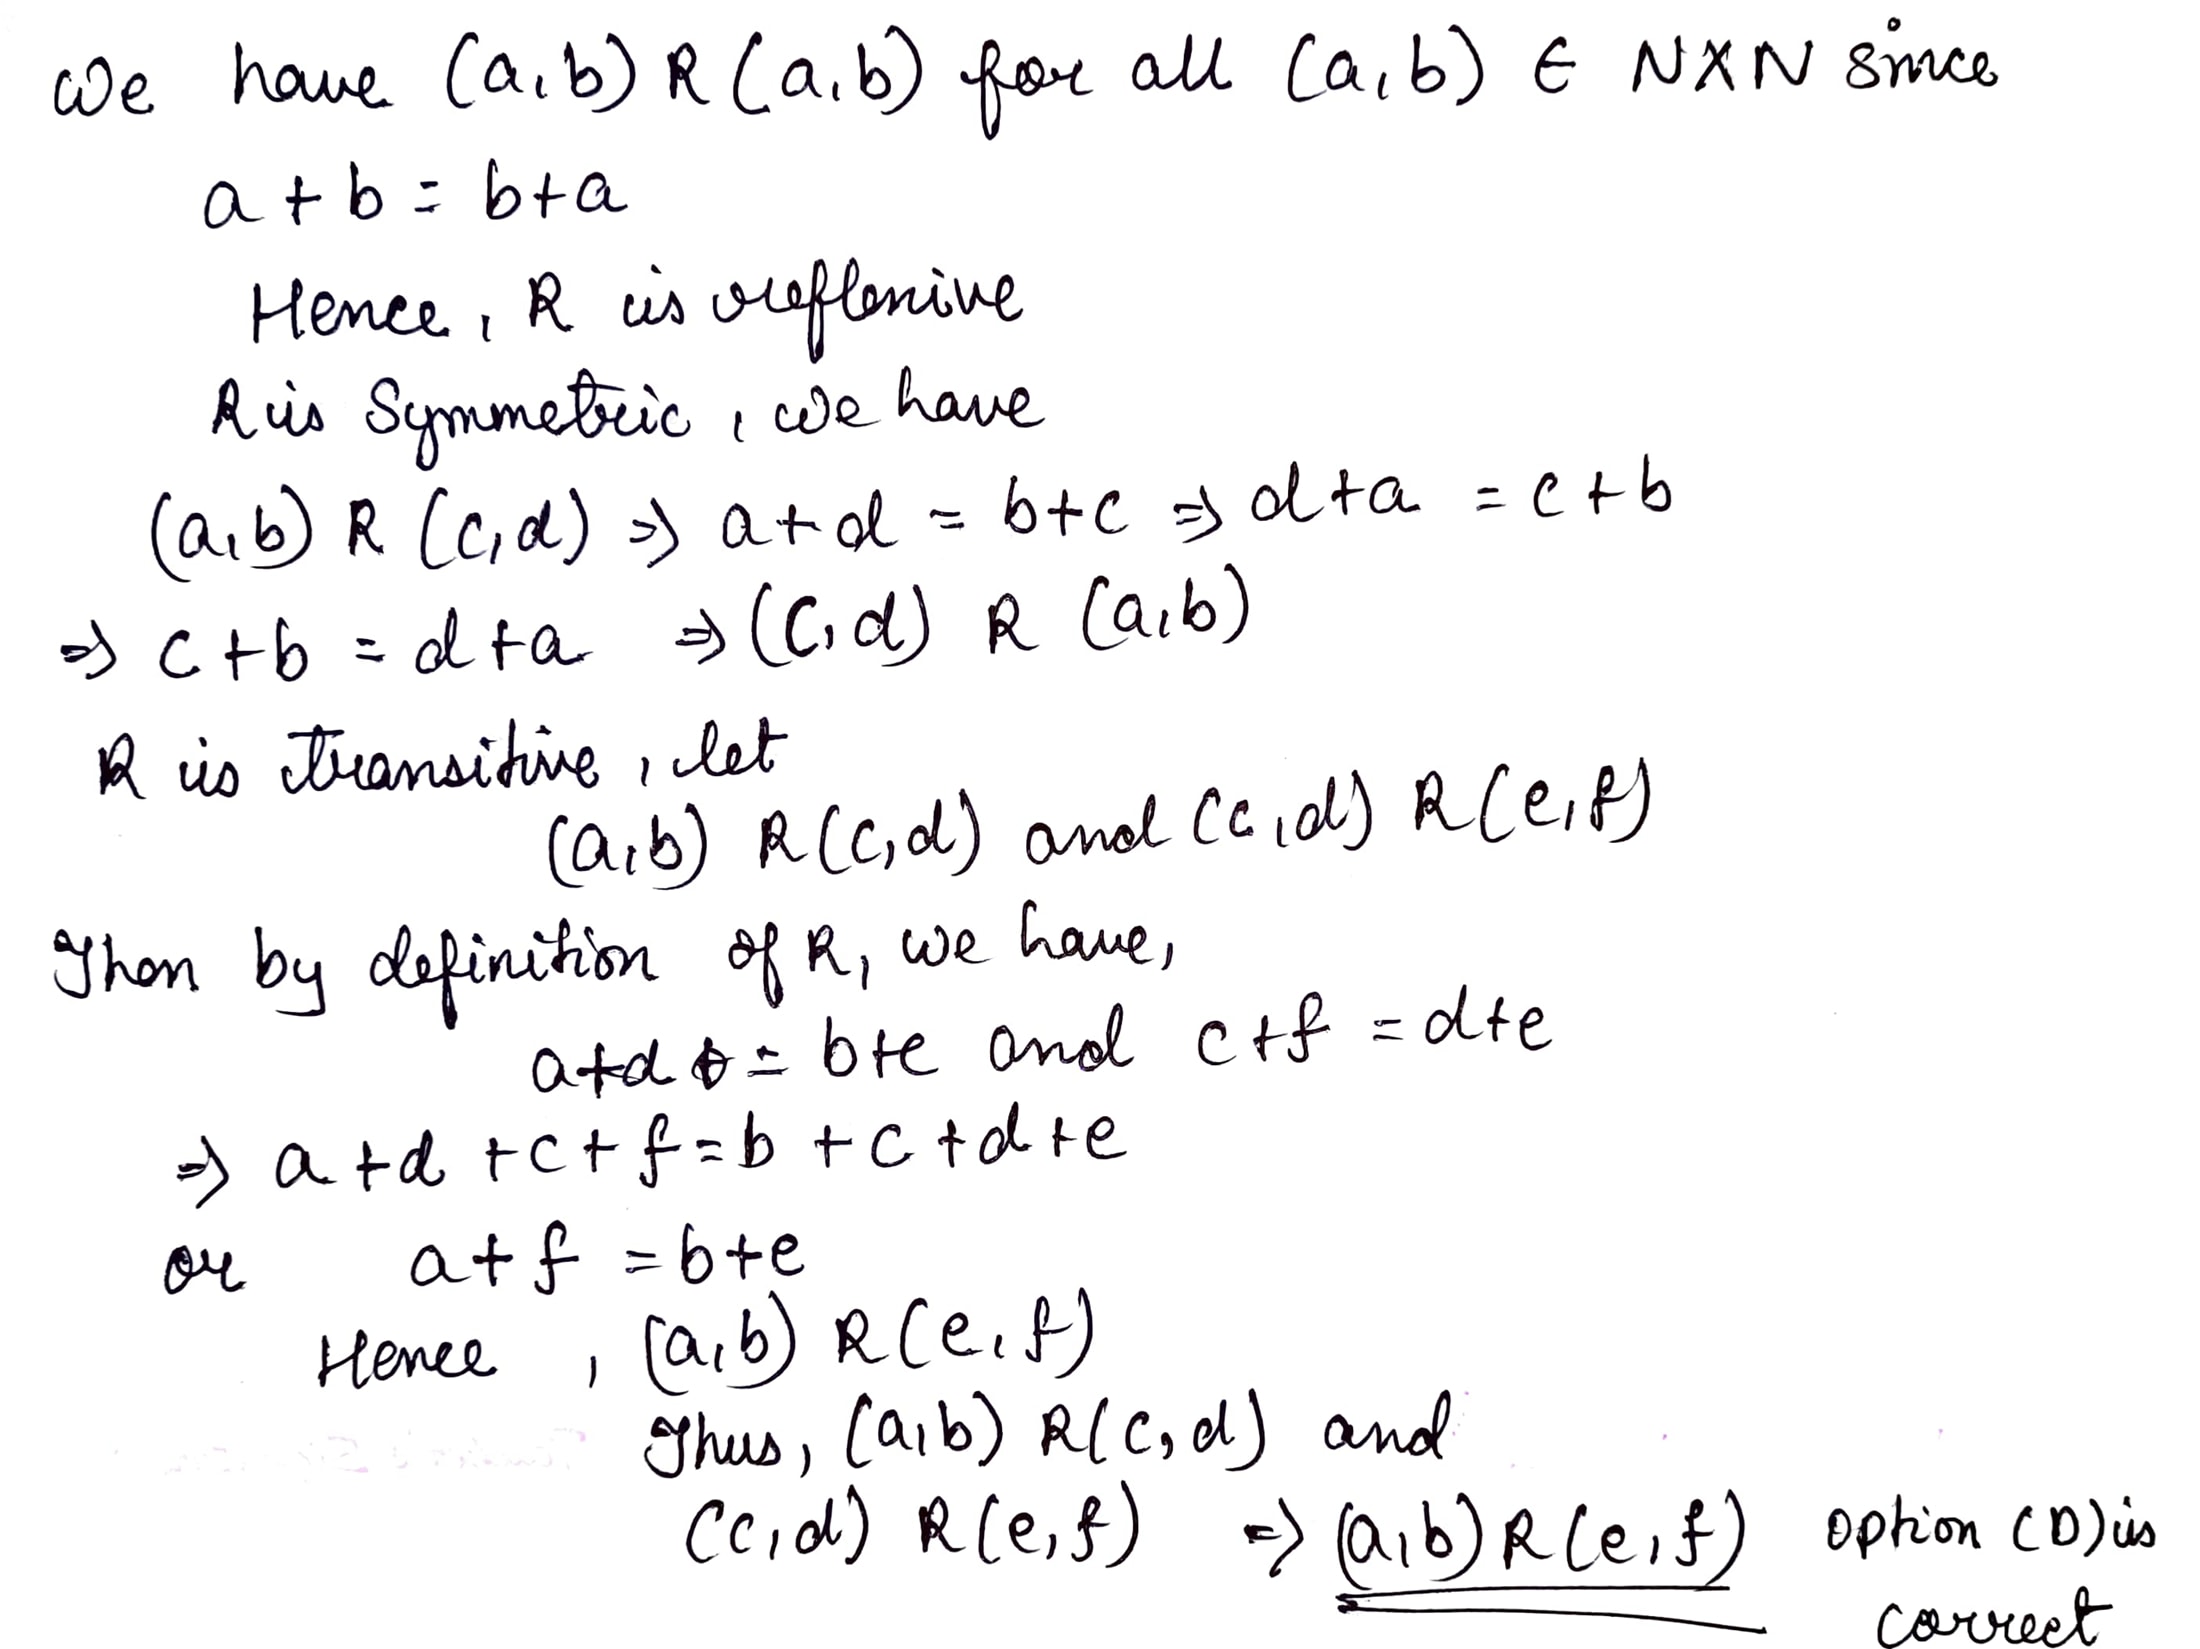 We have (a,b) R (a,b) for all (a,b) ∈ N×N since
a + b = b+a
Hence, R is reflexive
R is Symmetric, we have
(a,b) R (c,d) ⇒ a+d = b+c ⇒ d+a = c+b
⇒ c+b = d+a ⇒ (c,d) R (a,b)
R is transitive, let
(a,b) R (c,d) and (c,d) R (e,f)
Then by definition of R, we have,
a+d = b+e and c+f = d+e
⇒ a+d+c+f=b+c+d+e
or a+f = b+e
Hence, (a,b) R (e,f)
Thus, (a,b) R (c,d) and
(c,d) R (e,f) ⇒ (a,b) R (e,f) option (D) is
correct